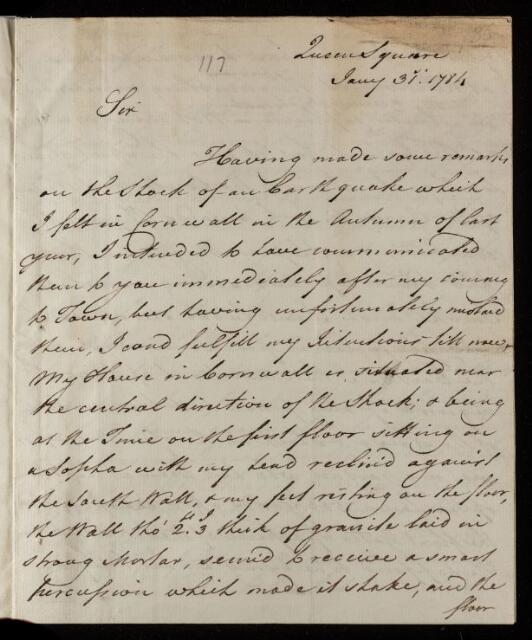 117
Queen Square
Jany 31. 1784
Sir
Having made some remarks
on the Shock of an Earthquake which
I felt in Cornwall in the Autumn of last
year, I intended to have communicated
them to you immediately after my coming
to Town, but having unfortunately mislaid
them, I coud fulfill my Intentions till now,
My House in Cornwall is situated near
the central direction of the Shock; & being
at the Time on the first floor sitting on
a Sopha with my head reclin'd against
the South Wall, & my feet resting on the floor,
the Wall tho' 2.3 thick of granite laid in
strong Mortar, seem'd to receive a smart
Percussion which made it shake, and the
floor